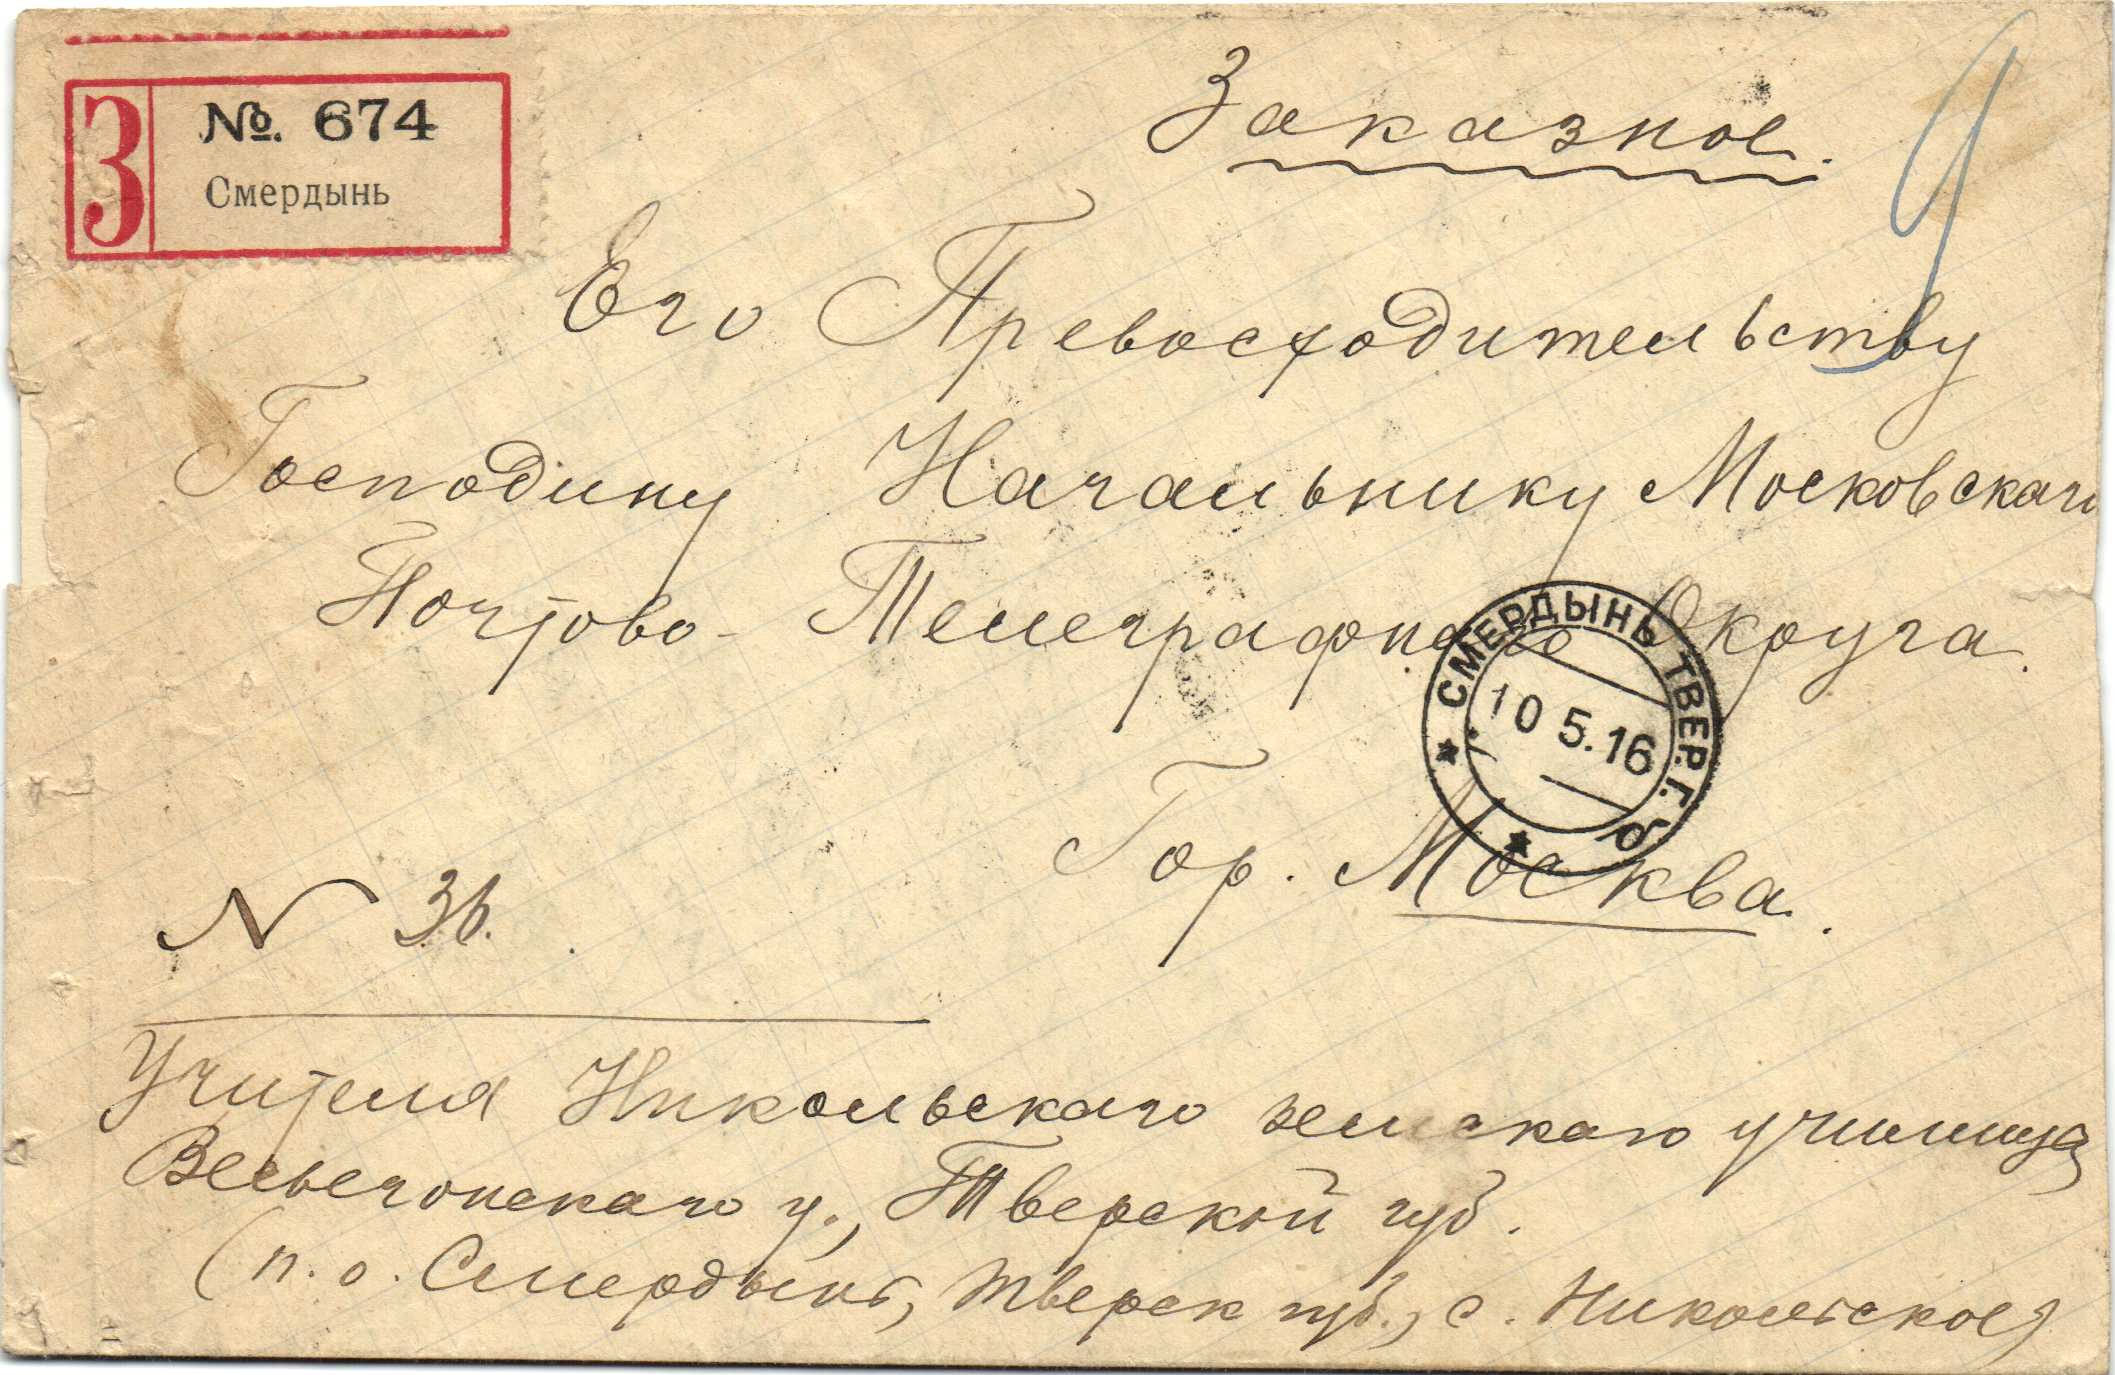 З
№. 674
Смердынь
Заказное.
9
Его Превосходительству
Господину Начальнику Московскаго
Почтово-Телеграфнаго Округа.
СМЕРДЫНЬ ТВЕР. Г.
10 5.16
б
Гор. Москва.
N 36.
Учителя Никольскаго земскаго училища
Весьегонскаго у., Тверской губ.
(п. о. Смердынь, Тверск губ., с. Никольское)